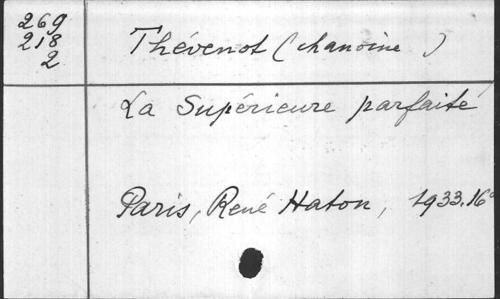 269
218
2
Thévenot (chanoine )
La Supérieure parfaite
Paris, René Haton, 1933.16°